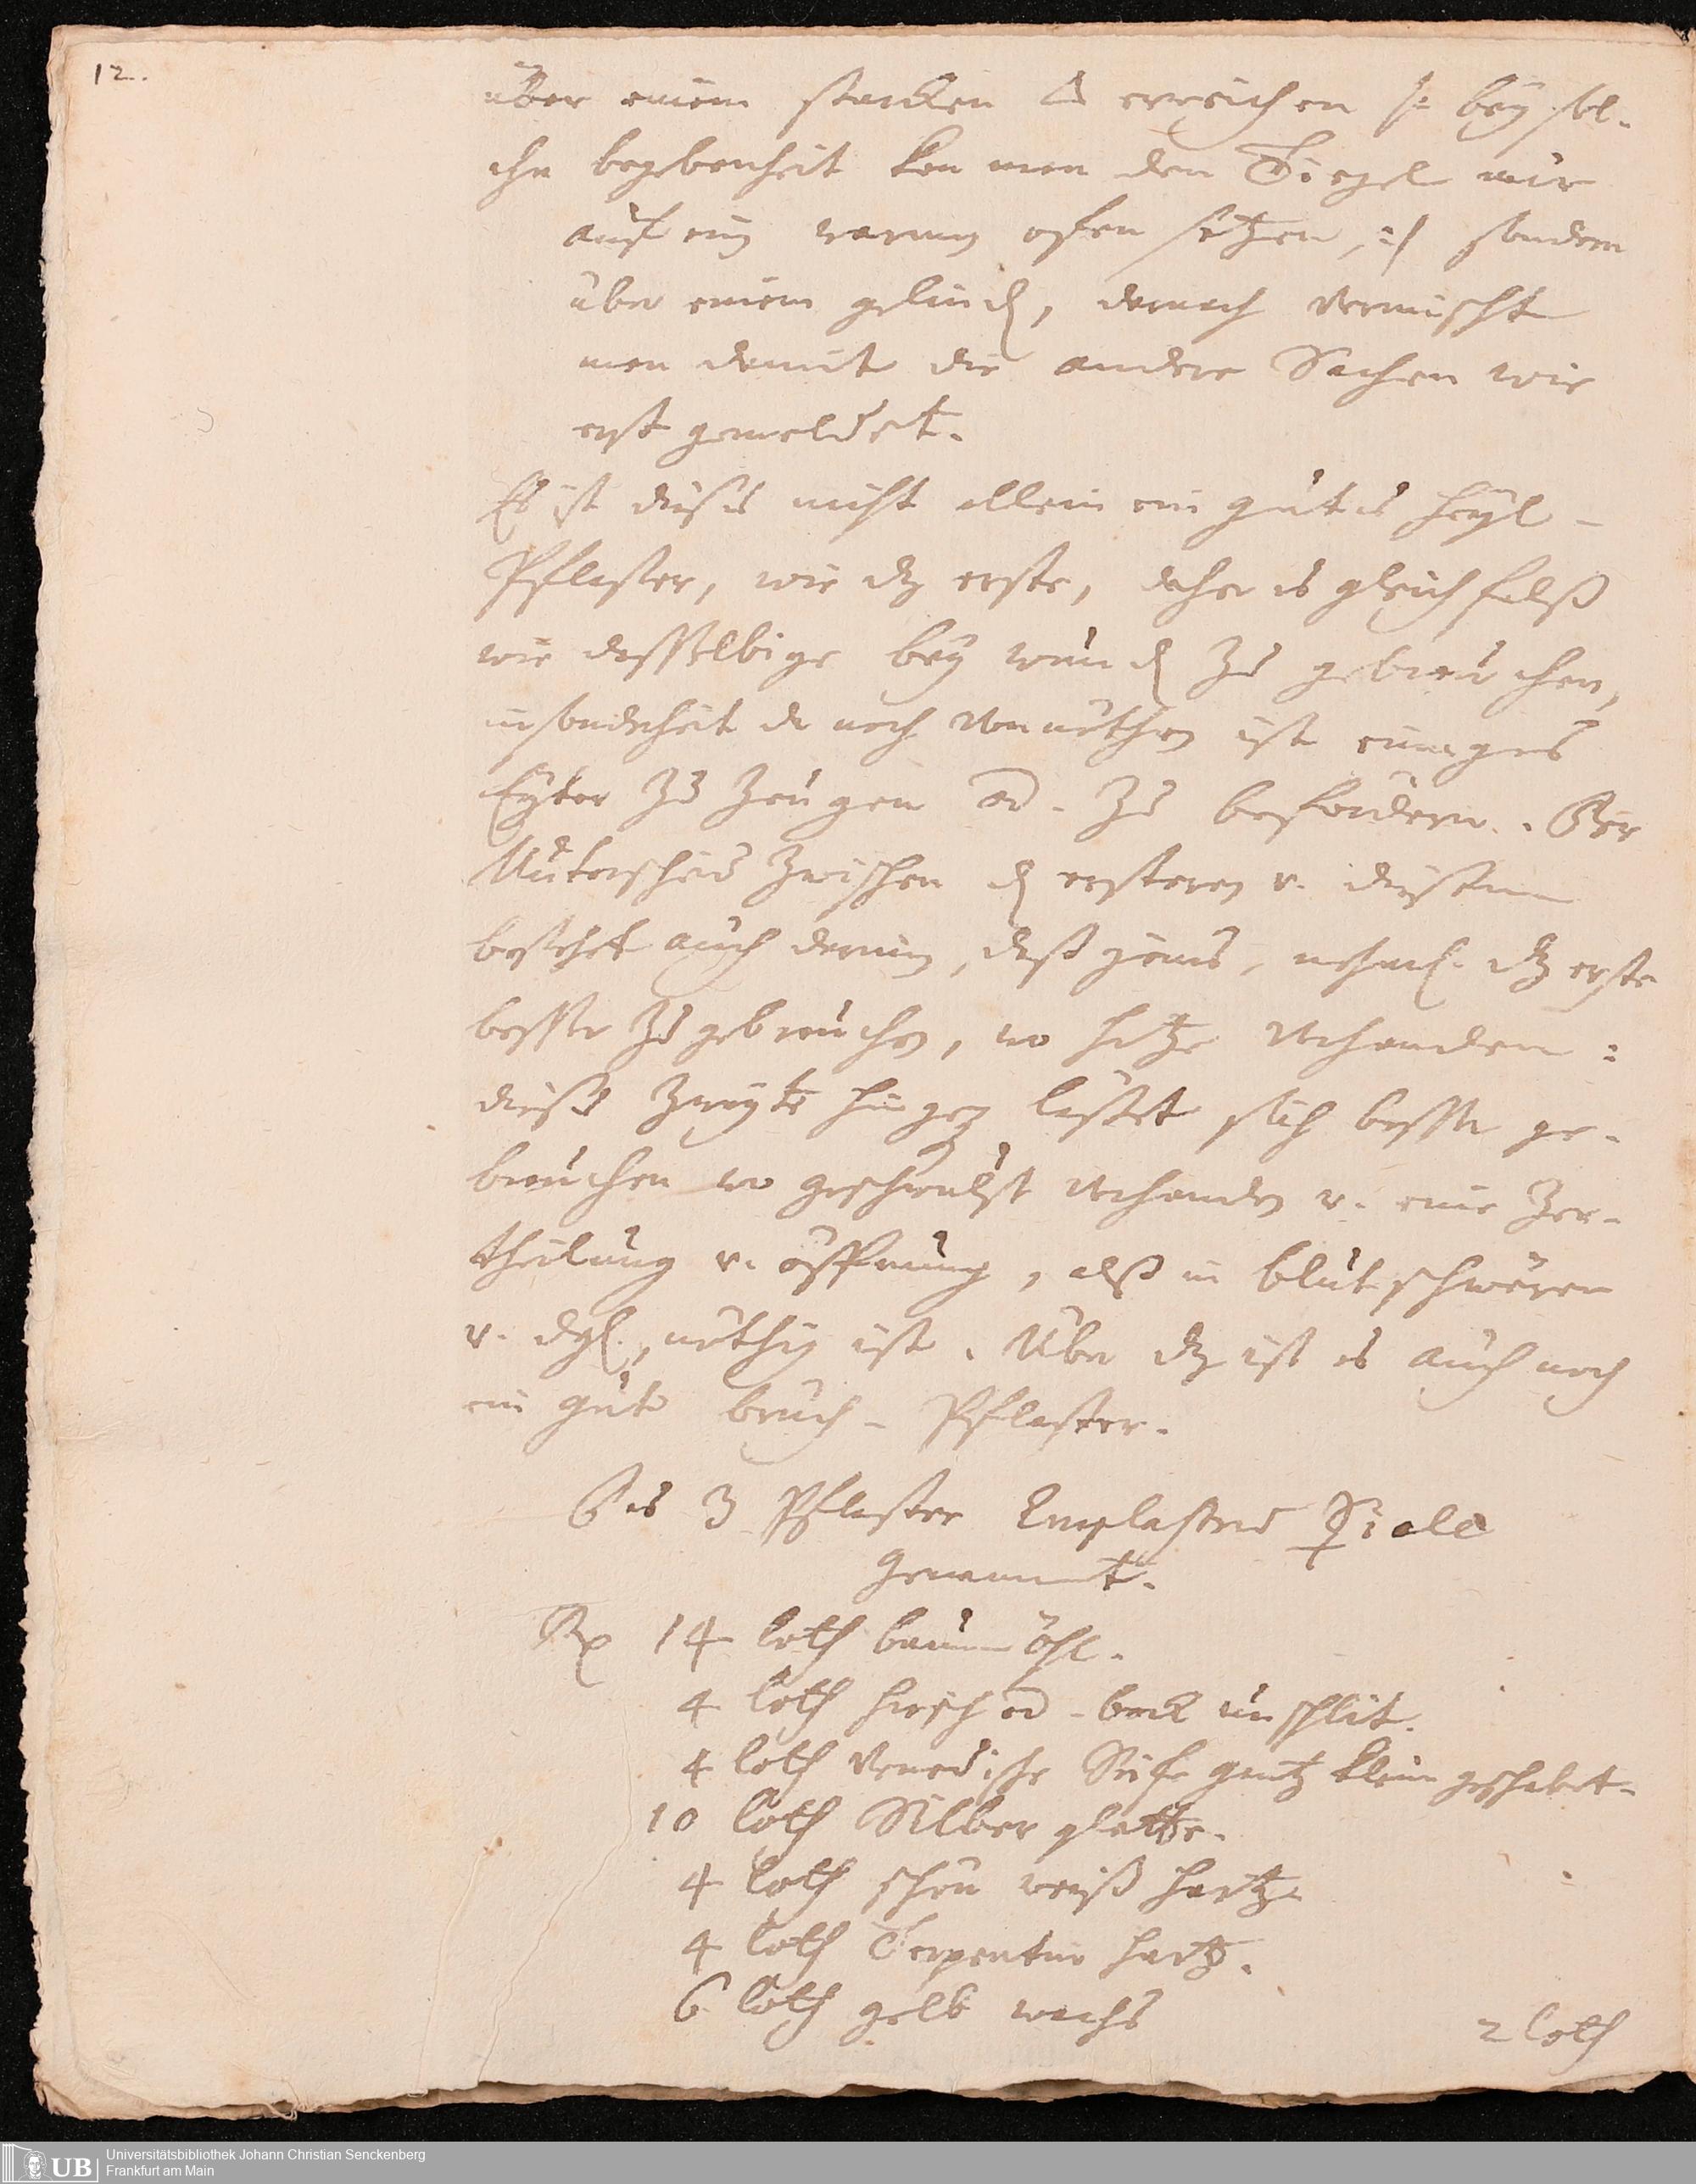 12.
über einem starcken 🜂 erreichen /: bey sol-
che begebenheit kan man den Tiegel nur
auf ein warmen ofen setzen, :/ sondern
über einem gelinden, darnach vermischt
man damit die andere Sachen wie
erst gemeldet.
Es ist dieses nicht allein ein gutes heyl-
Pflaster, wie dz erste, daher es gleichfalß
wie dasselbige bey wunden zu gebrauchen,
insonderheit da noch vonnöthen ist einiges
Eyter zu zeugen od. zu befördern. Der
Unterscheid zwischen den ersteren u. diesem
bestehet auch darin, daß jenes, nehml. dz erste
besser zu gebrauchen, wo hitze verhanden:
dieses zweyte hingegen lässet sich besser ge-
brauchen wo geschwulst verhanden u. eine zer-
theilung u. öffnung, alß in blutschwären
u. dgl., nöthig ist. Über dz ist es auch noch
ein gutes bruch-Pflaster.
Das 3 Pflaster Emplastrum ☿iale
genannt.
Rp 14 loth baumöhl.
4 loth hirsch od. bock unschlit.
4 loth Venedische Seife gantz klein geschabet.
10 loth Silber glette.
4 loth schön weiß hartz.
4 loth Terpentin hartz.
6 loth gelb wachs
2 loth
UB Universitätsbibliothek Johann Christian Senckenberg
Frankfurt am Main